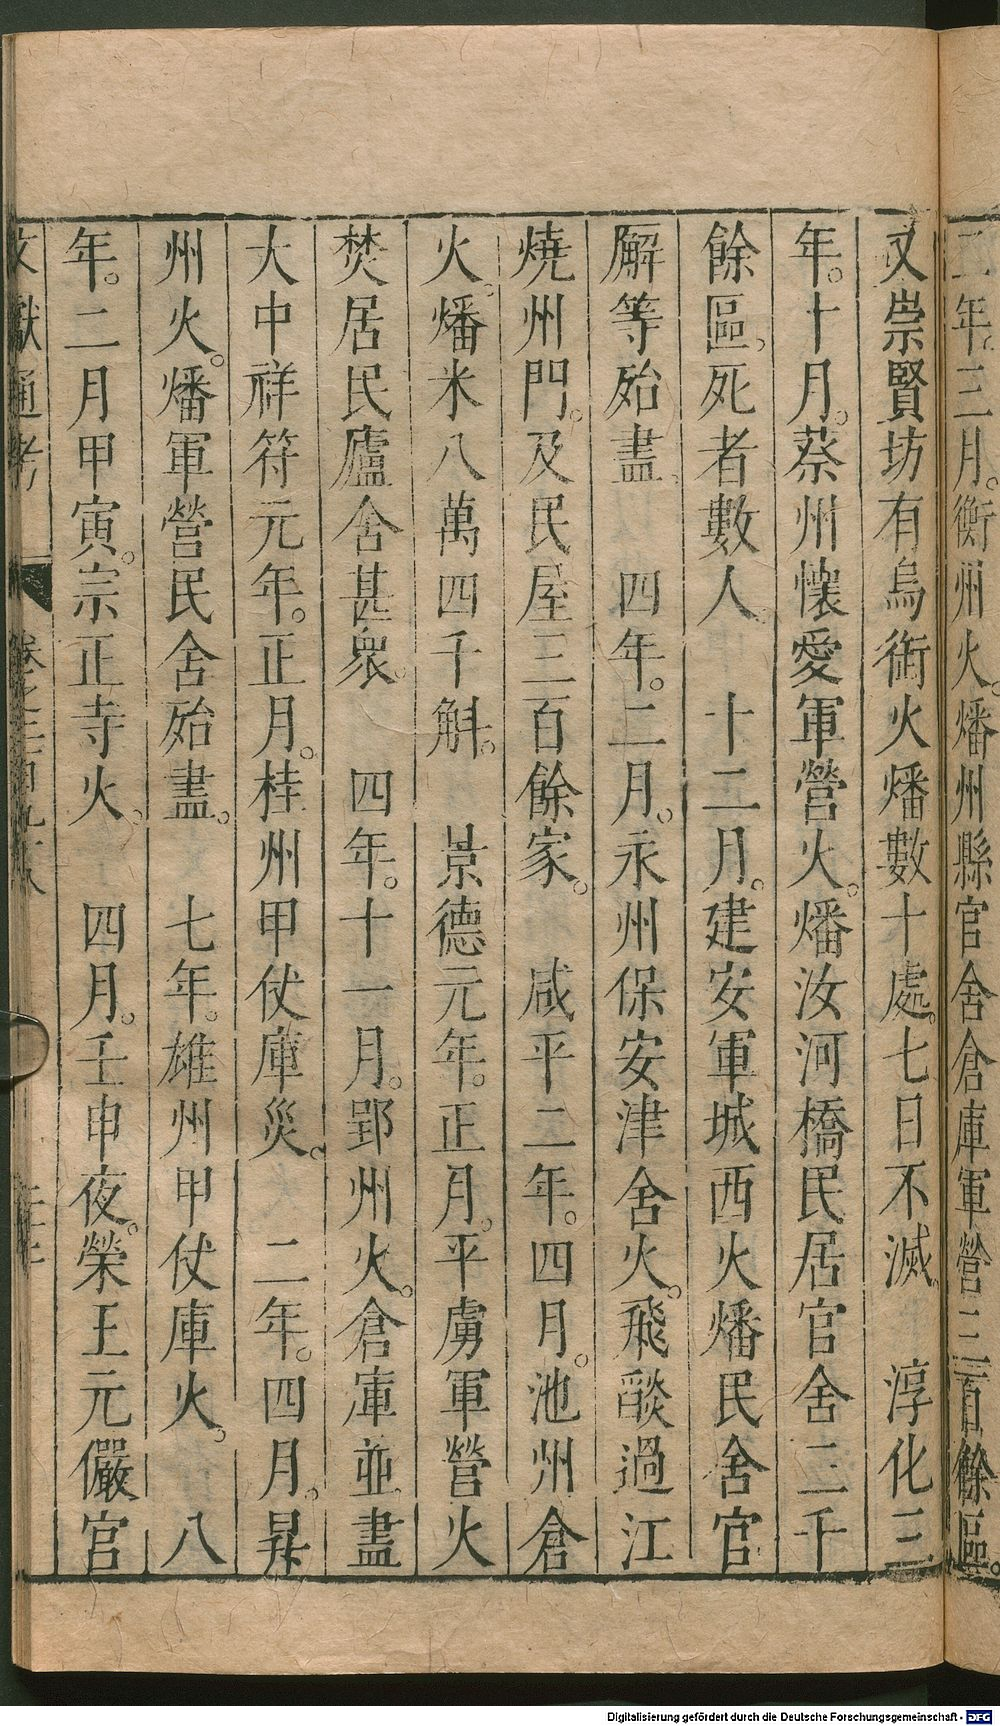 二年。三月。衡州火。燔州縣官舍倉庫軍營三百餘區。
又崇賢坊有烏銜火燔數十處。七日不滅。　淳化三
年。十月。蔡州懷愛軍營火。燔汝河橋民居官舍二千
餘區。死者數人。　十二月。建安軍城西火燔民舍官
廨等殆盡。　四年。二月。永州保安津舍火。飛燄過江
燒州門。及民屋三百餘家。　咸平二年。四月。池州倉
火。燔米八萬四千斛。　景德元年。正月。平虜軍營火
焚居民廬舍甚衆。　四年。十一月。郢州火。倉庫並盡
大中祥符元年。正月。桂州甲仗庫災。　二年。四月。昇
州火。燔軍營民舍殆盡。　七年。雄州甲仗庫火。　八
年。二月甲寅。宗正寺火。　四月。壬申夜。榮王元儼宮
文獻通考　卷之二百九十八
Digitalisierung gefördert durch die Deutsche Forschungsgemeinschaft - DFG